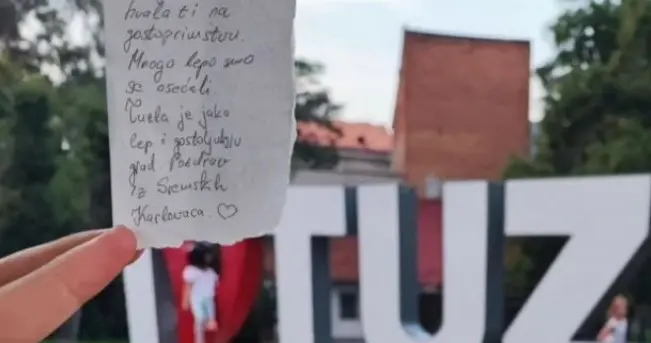 hvala ti na
gostoprimstvu.
Mnogo lepo smo
se osećali.
Tuzla je jako
lep i gostoljubiv
grad Pozdrav
iz Sremskih
Karlovaca ♡
TUZ